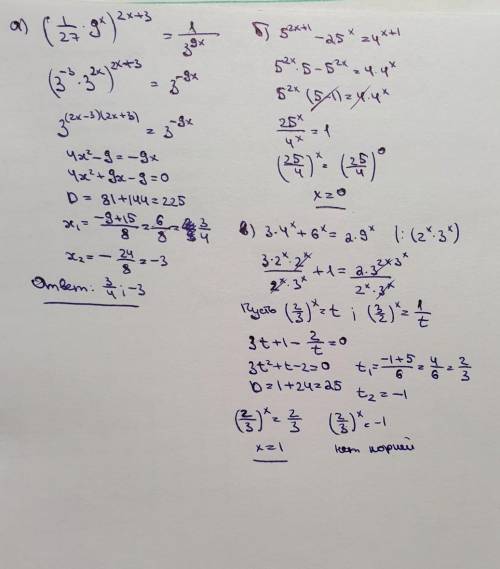 а) (1/27 · 9^x)^(2x+3) = 1/3^(9x)
(3^(-3) · 3^(2x))^(2x+3) = 3^(-9x)
3^((2x-3)(2x+3)) = 3^(-9x)
4x² - 9 = -9x
4x² + 9x - 9 = 0
D = 81 + 144 = 225
x₁ = (-9+15)/8 = 6/8 = 3/4
x₂ = -24/8 = -3
Ответ: 3/4; -3
б) 5^(2x+1) - 25^x = 4^(x+1)
5^(2x) · 5 - 5^(2x) = 4 · 4^x
5^(2x) (5-1) = 4 · 4^x
25^x/4^x = 1
(25/4)^x = (25/4)^0
x = 0
в) 3 · 4^x + 6^x = 2 · 9^x |: (2^x · 3^x)
(3 · 2^x · 2^x)/(2^x · 3^x) + 1 = (2 · 3^x · 3^x)/(2^x · 3^x)
Пусть (2/3)^x = t ; (3/2)^x = 1/t
3t + 1 - 2/t = 0
3t² + t - 2 = 0 t₁ = (-1+5)/6 = 4/6 = 2/3
D = 1 + 24 = 25 t₂ = -1
(2/3)^x = 2/3 (2/3)^x = -1
x = 1 нет корней